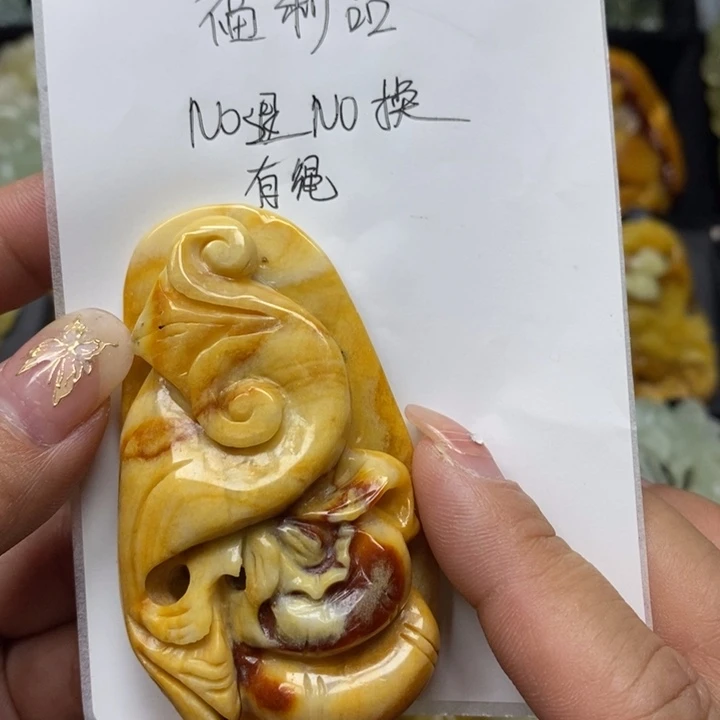 福利品
NO退NO换
有绳